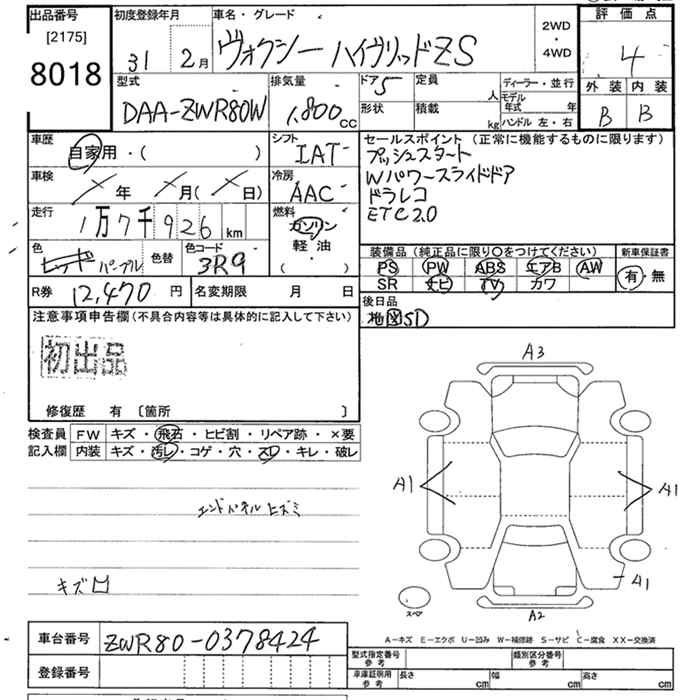 出品番号
[2175]
8018
初度登録年月
31 2月
車名・グレード
ヴォクシー ハイブリッドZS
2WD
・
4WD
評価点
4
外装 内装
B B
型式
DAA-ZWR80W
排気量
1,800cc
ドア 5
形状
定員 人
積載 kg
ディーラー・並行
モデル年式 年
ハンドル 左・右
車歴
自家用・( )
シフト
IAT
セールスポイント (正常に機能するものに限ります)
プッシュスタート
Wパワースライドドア
ドラレコ
ETC2.0
車検
年 月( 日)
冷房
AAC
走行
1万7千926km
燃料
ガソリン
軽油
( )
色
レッド パープル
色替
色コード
3R9
装備品 (純正品に限り○をつけてください)
PS PW ABS エアB AW
SR ナビ TV カワ
新車保証書
有・無
R券 12,470円
名変期限 月 日
後日品
地図SD
注意事項申告欄 (不具合内容等は具体的に記入して下さい)
初出品
修復歴 有 [箇所 ]
検査員
記入欄
FW キズ・飛石・ヒビ割・リペア跡・×要
内装 キズ・汚レ・コゲ・穴・スレ・キレ・破レ
エンドパネル ヒズミ
キズ
A3
A1
A1
A1
A2
スペア
A-キズ E-エクボ U-凹み W-補修跡 S-サビ C-腐食 XX-交換済
車台番号 ZWR80-0378424
登録番号
型式指定番号
参考
類別区分番号
参考
車庫証明用
参考
長さ cm 幅 cm 高さ cm